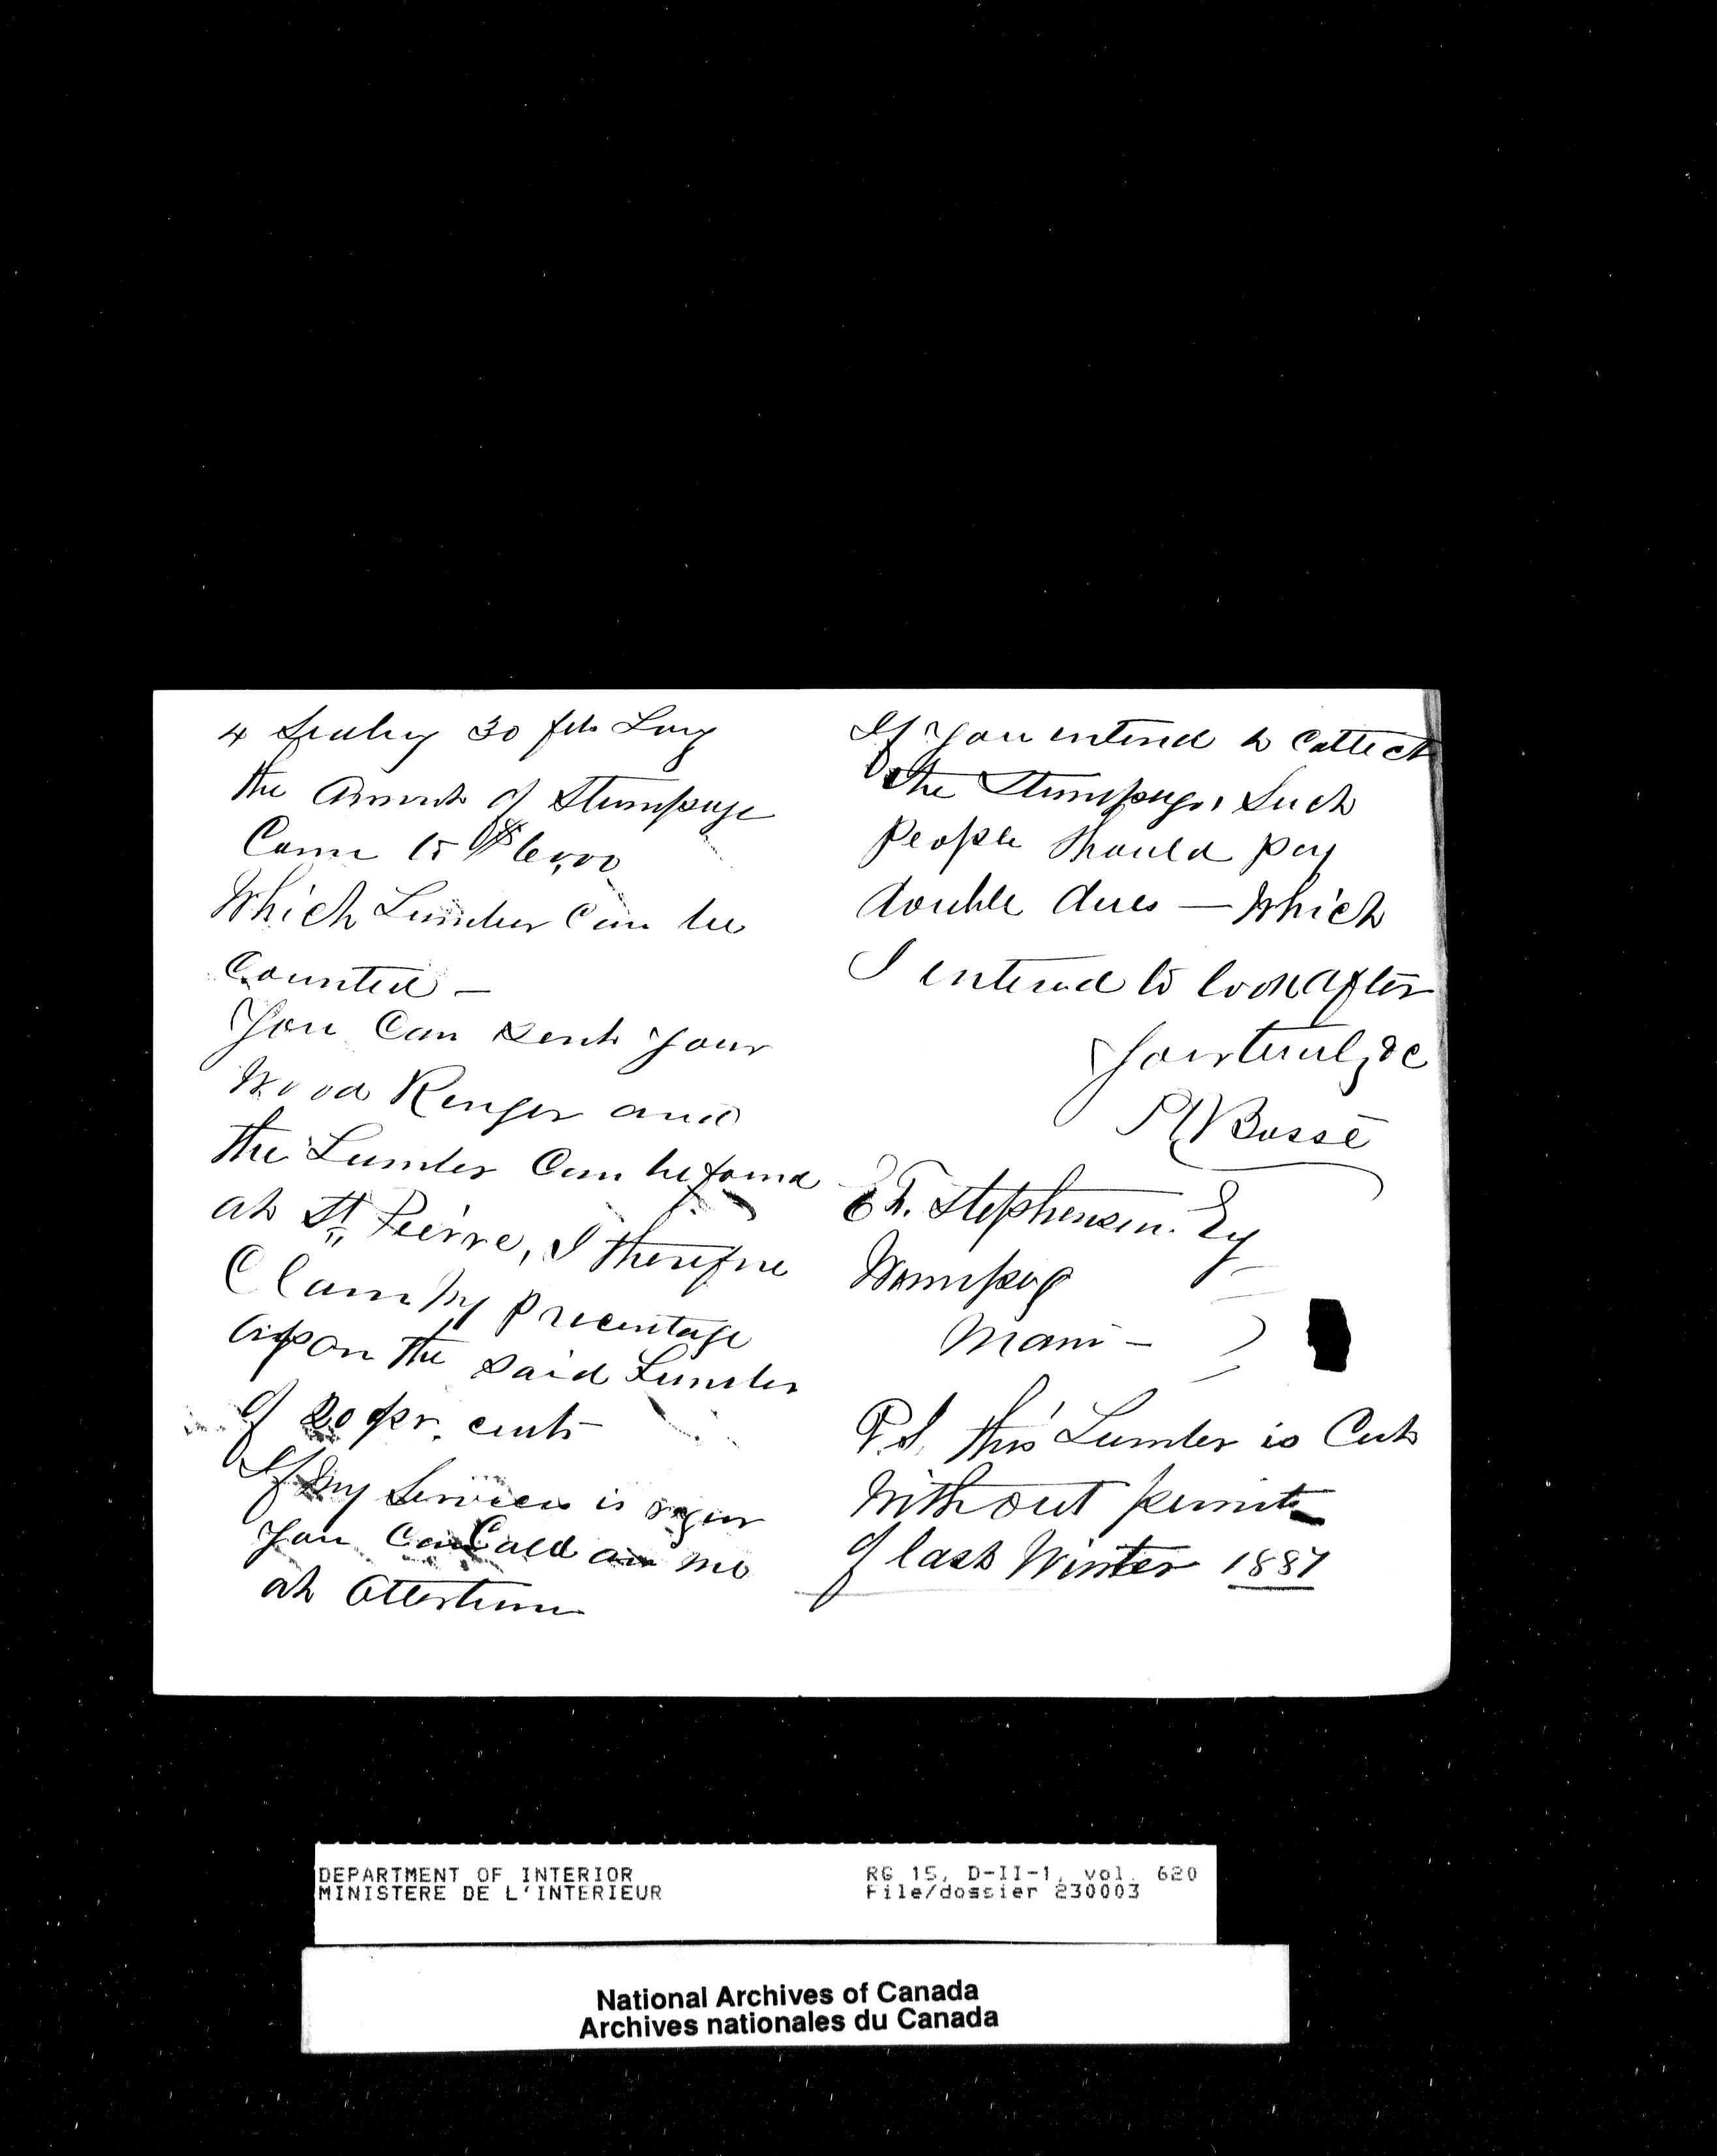 4 30 feet Long
the Amount of Stumpage
Came to $6,00
Which Lumber Can be
Counted —
You Can Send your
Wood Renger and
the Lumber Can be found
at St Peirre, I therefore
Claim My precentage
upon the said Lumber
of 20 pr. cent
If My Services is
You Can Call on me
at Otterburne
If you intend to Collect
the Stumpage, Such
People Should pay
double dues — Which
I intend to look after
Yours truly &c
Bossé
E F. Stephenson. Esq
Winnipeg
Mani —
P.S. this Lumber is Cut
Without permit
of last Winter 1887
DEPARTMENT OF INTERIOR
MINISTERE DE L'INTERIEUR
RG 15, D-II-1, vol. 620
File/dossier 230003
National Archives of Canada
Archives nationales du Canada